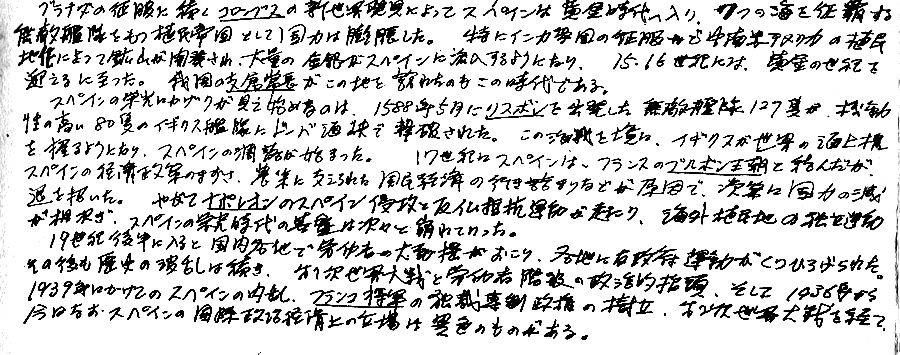 グラナダの征服に続くコロンブスの新世界発見によってスペインは黄金時代へ入り、7つの海を征覇する
無敵艦隊をもつ植民帝国として国力は膨脹した。特にインカ帝国の征服から中南米アメリカの植民
地化によって鉱山が開発され、大量の金銀がスペインに流入するようになり、15.16世紀には、黄金の世紀を
迎えるに至った。我国の支倉常長がこの地を訪れたのもこの時代である。
スペインの栄光にカゲリが見え始めるのは、1588年5月にリスボンを出発した無敵艦隊127隻が、機動
性の高い80隻のイギリス艦隊にドーバー海峡で撃破された。この海戦を境に、イギリスが世界の海上権
を握るようになり、スペインの凋落が始まった。17世紀にスペインは、フランスのブルボン王朝と結んだが、
スペインの経済政策のまずさ、農業に支えられた国民経済の行き詰まりなどが原因で、次第に国力の減
退を招いた。やがてナポレオンのスペイン侵攻と反仏抵抗運動が起こり、海外植民地の独立運動
が相次ぎ、スペインの栄光時代の基盤は次々と崩れていった。
19世紀後半に入ると国内各地で労働者の大動揺がおこり、各地に反政府運動がくりひろげられた。
その後も歴史の混乱は続き、第1次世界大戦と労働者階級の政治的抬頭、そして1936年から
1939年にかけてのスペインの内乱、フランコ将軍の独裁専制政権の樹立、第2次世界大戦を経て、
今日なお、スペインの国際政治経済上の立場は異色のものがある。